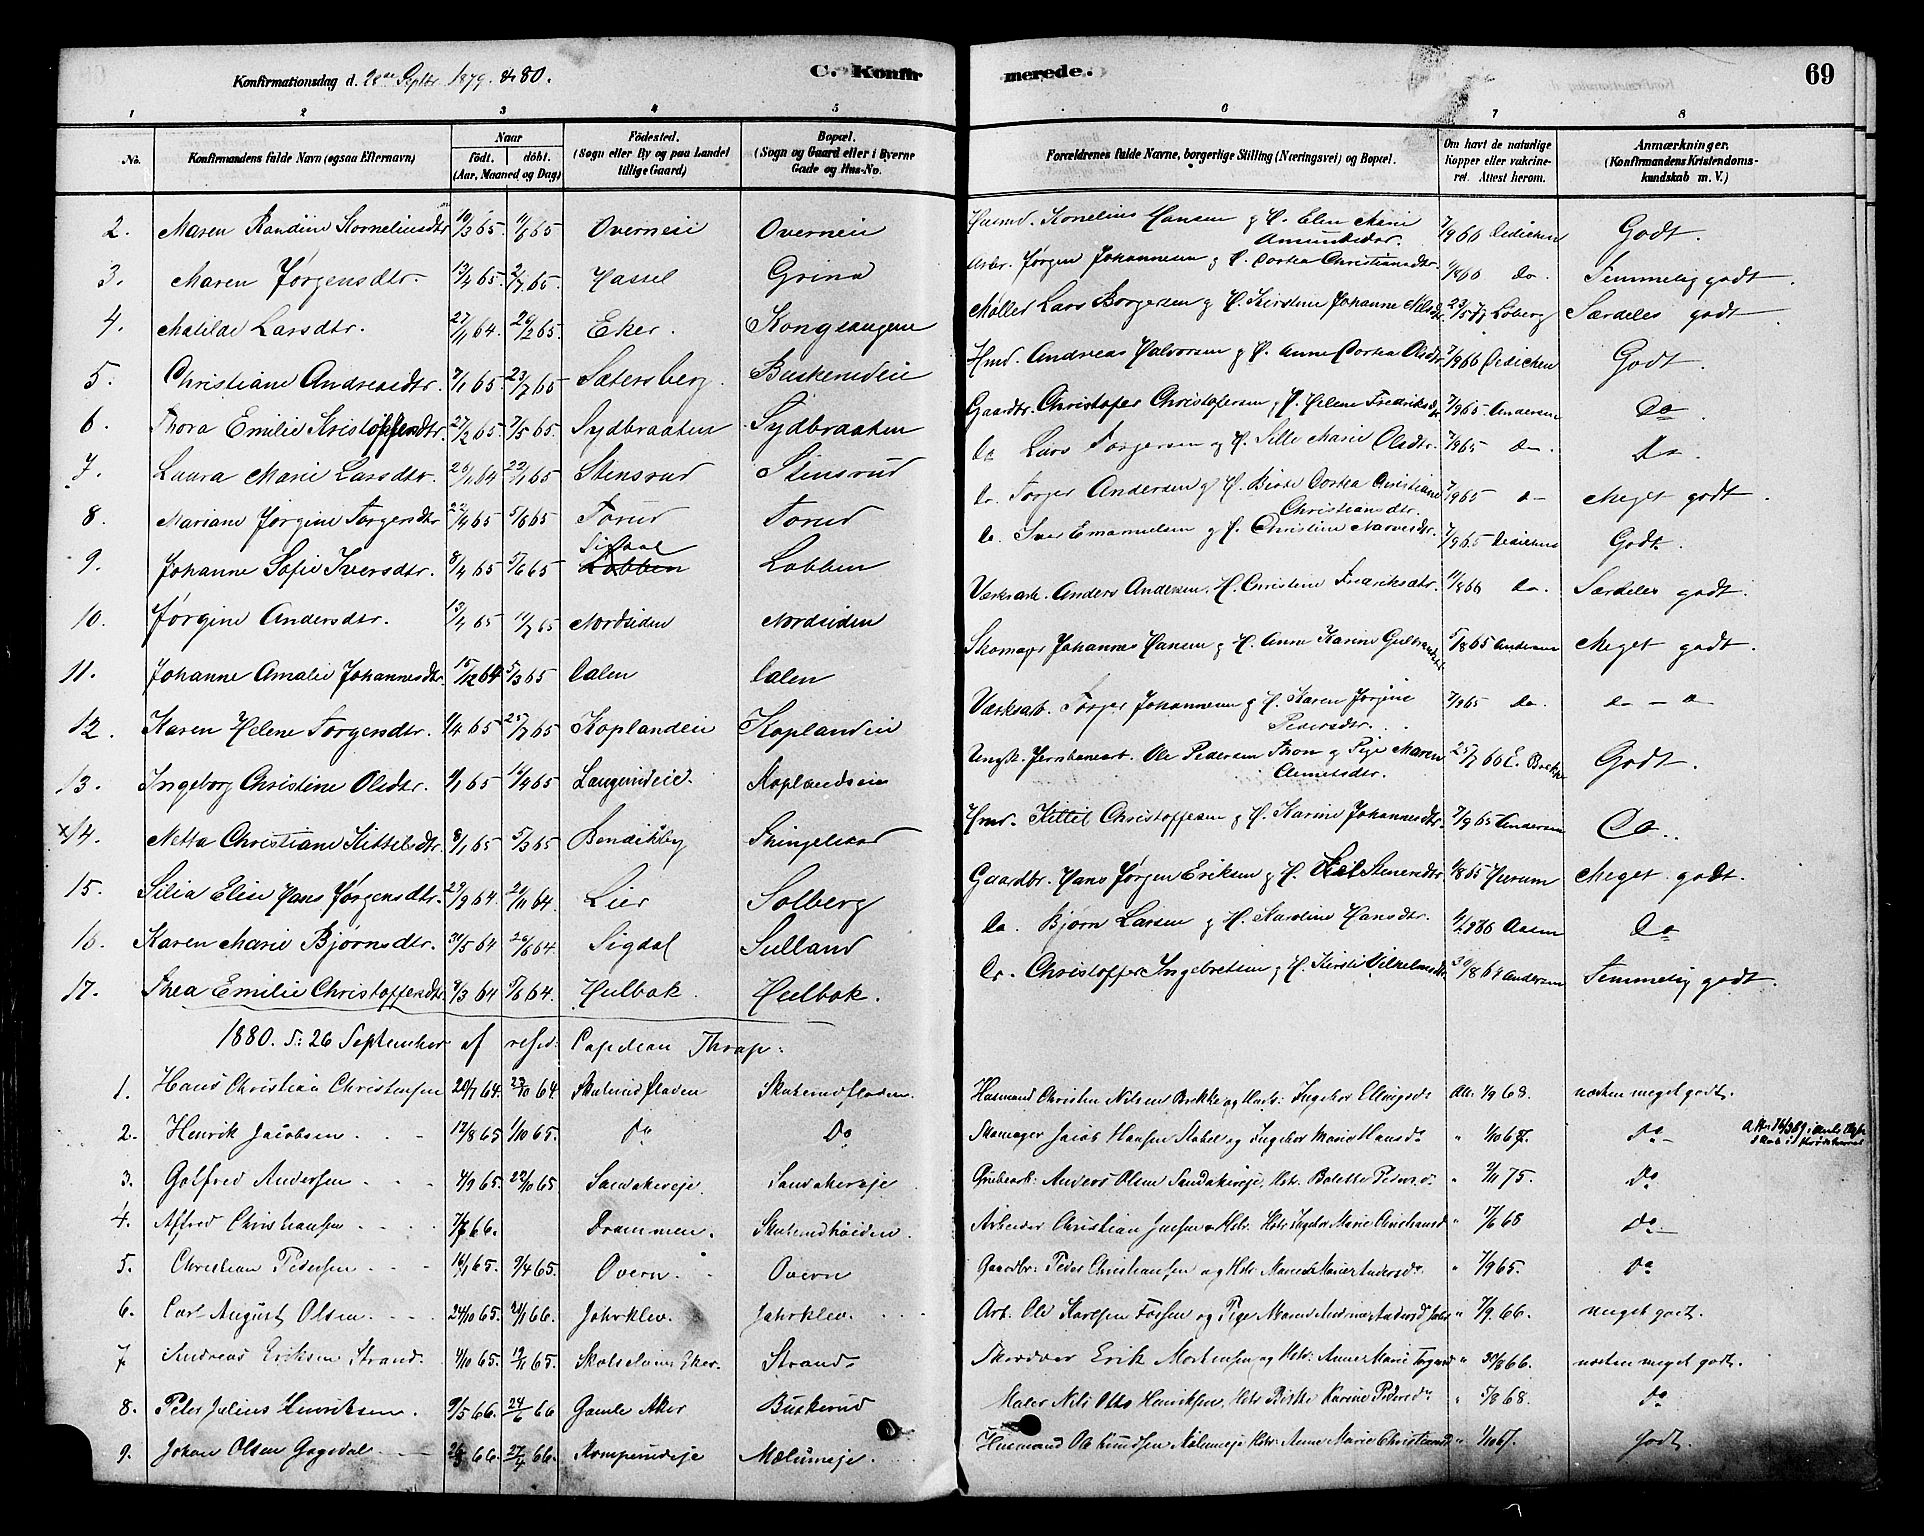 Konfirmationsdag d. 28de Septbr 1879. & 80.
C. Konfirmerede.
69
1 2 3 4 5 6 7 8
No. Konfirmandens fulde Navn (ogsaa Efternavn) Naar født. døbt. (Aar, Maaned og Dag) Fødested. (Sogn eller By og paa Landet tillige Gaard) Bopæl. (Sogn og Gaard eller i Byerne Gade og Hus-No. Forældrenes fulde Navne, borgerlige Stilling (Næringsvei) og Bopæl. Om havt de naturlige Kopper eller vakcineret. Attest herom. Anmærkninger. (Konfirmandens Kristendomskundskab m. V.)
2. Maren Randine Kornelius dtr 19/3 65 Overneie Overneie Husmd. Kornelius Hansen og H. Elen Marie Amundsdtr. 7/9 66 Dedichen Godt.
3. Maren Jørgensdtr. 13/4 65. 2/7 65 Hassel Grina Jørgen Johannesen og H. Dortea Christiansdtr. Do. Temmelig godt.
4. Matilde Larsdtr. 27/11 64. 26/2 65. Eker. Kongsaugene Møller Lars Borgersen og H. Kirstine Johanne Nilsdtr Løberg Særdeles godt
5. Christiane Andreasdtr. 7/1 65 23/7 65 Sætersberg. Buskerudeie Hmd. Andreas Halvorsen og H. Anne Dortea Olsdtr. 7/9 66 Dedichen Godt.
6. Thora Emilie Kristoffersdtr. 27/2 65. 7/5 65 Sydbraaten Sydbraaten Gaardbr. Christofer Christofersen og H. Helene Fredriksdtr 7/9 65 Andersen Do
7. Laura Marie Larsdtr. 20/11 64 22/1 65 Stensrud Stensrud Do Lars Torgersen og H. Sille Marie Olsdtr. 7/9 65 do. Do.
8. Mariane Jørgine Torgersdtr 22/4 65 5/6 65 Torud Torud Do. Torger Andersen og H. Birte Dortea Christiane Christiansdtr. 7/9 65 do Meget godt.
9. Johanne Sofie Iversdtr. 8/4 65 5/6 65 Sigdal Lobben Lobben Do. Iver Emanuelsen og H. Christine Narvesdtr. 7/9 65 Dedichen Godt.
10. Jørgine Andersdtr. 13/4 65 11/7 65 Nordsiden Nordsiden Værksarb. Anders Andersen, H. Christine Fredriksdtr. 11/8 66 do. Særdeles godt.
11. Johanne Amalie Johannesdtr. 15/12 64 5/3 65 Dalen Dalen Skomager Johannes Hansen og H. Anne Karine Gulbrandsdtr 5/8 65 Andersen Meget godt.
12. Karen Helene Torgersdtr. 1/4 65 25/7 65 Koplandeie Koplandeie Værksarb. Torger Johannesen og H. Karen Jørgine Pedersdtr. 7/9 65 do. do — o
13. Ingeborg Christine Olsdtr. 9/1 65 17/4 65 Langerudeie. Koplandseie Ungk. Jernbanearb. Ole Pedersen Thon og Pige Maren 25/7 66 E. Godt.
x14. Netta Christiane Kittilsdtr. 8/1 65 5/3 65 Bendikby Hmd. Kittil Christoffersen og H. Karine Johannesdtr. 7/9 65 Andersen Do.
15. Silia Elise Hans Jørgensdtr. 29/9 64. 20/11 64. Lier Solberg Gaardbr. Hans Jørgen Eriksen og H. Stenersdtr. 1/8 65 Hurum Meget godt.
16. Karen Marie Bjørnsdtr. 30/5 64 26/6 64. Sigdal Sulland Do. Bjørn Larsen og H. Karoline Hansdtr. Aasen Do
17. Thea Emilie Christoffersdtr. 9/3 64 5/6 64. Hulbak. Hulbak. Do. Christoffer Ingebretsen og H. Kersti Vilhelmsdtr. 30/8 64 Andersen Temmelig godt.
1880. d: 26 September af resid: Capellan Thrap:
1. Hans Christian Christensen 20/7 64. 23/10 64 Skuterudfladen Skuterudfladen. Husmand Christen Nilsen Brekke og Hustr. Ingebor Ellingsdr Att. 1/9 68. næsten meget godt.
2. Henrik Jacobsen 12/8 65 1/10 65. Do Do Skomager Jacob Hansen Stabel og Ingebor Marie Hansdr " 1/10 67. Do
3. Golfred Andersen 4/9 65. 22/10 65 Sandakereje. Sandakereje Grubearb. Anders Olsen Sandakereje, Hstr. Bolette Pedersdr " 2/11 75. Do
4. Alfred Christiansen 7/7 66. Drammen. Skuterudhøiden. Arbeider Christian Jensen Hstr Ingebor Marie Christiansd " 17/6 68 Do
5. Christian Pedersen 16/1 65. 9/4 65. Overn Overn Gaardbr. Peder Christiansen og Hstr. Maren Marie Andersdr " 7/9 65. Do
6. Carl August Olsen 24/10 65. 21/1 66. Jahrklev. Jahrklev. Arb. Ole Karlsen Fossen og Pige Maren Andrine Andersd " 7/9. 66. meget godt.
7. Andreas Eriksen Strand. 4/10 65. 19/11 65. Skotselven Eker. Strand. Skrædder Erik Mortensen og Hstr. Anne Marie Torgersd " 30/8 66. næsten meget godt.
8. Peter Julius Henriksen. 9/5 66. 24/6 66 Gamle Aker Buskerud Maler Nils Otto Henriksen, Hstr. Birthe Karine Pedersdr " 5/8 68. Do
9. Johan Olsen Gagsdal 26/3 66. 27/4 66. Komperudeje Mælumeje. Husmand Ole Knudsen Mælumeje Hstr. Anne Marie Christiansd " 1/10 67. Godt.